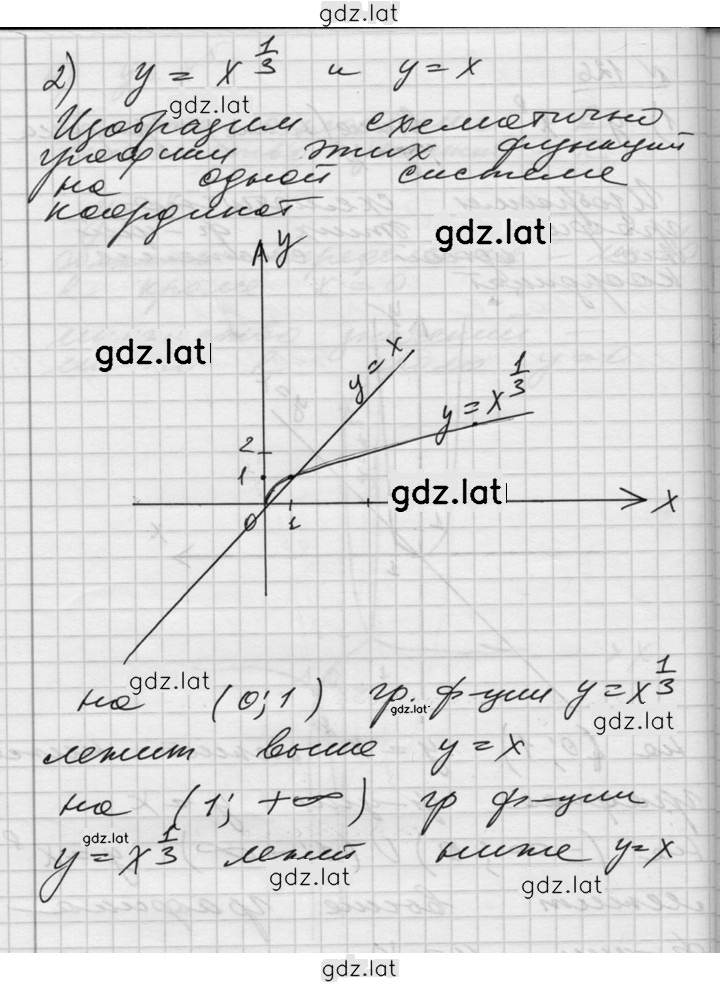 gdz.lat
2) y = x^(1/3) и y = x
gdz.lat
Изобразим схематично
графики этих функций
на одной системе
координат
gdz.lat
y
gdz.lat
y = x
y = x^(1/3)
2
1
gdz.lat
0 1 x
gdz.lat
на (0; 1) гр. ф-ции y = x^(1/3)
gdz.lat
gdz.lat
лежит выше y = x
на (1; +∞) гр ф-ции
gdz.lat
y = x^(1/3) лежит ниже y = x
gdz.lat
gdz.lat
gdz.lat